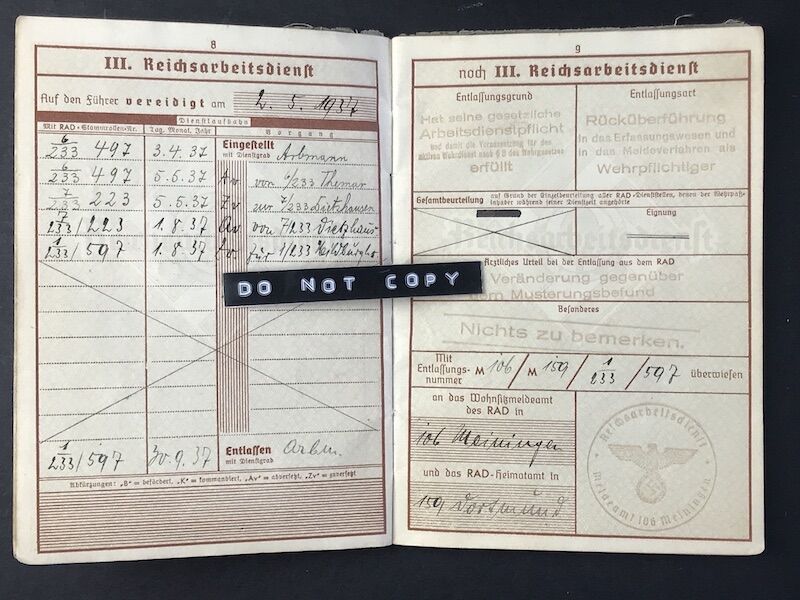 8
III. Reichsarbeitsdienst
Auf den Führer vereidigt am 2. 5. 1937
Dienstlaufbahn
Mit RAD-Stammrollen-Nr. Tag, Monat, Jahr Vorgang
6/233 497 3.4.37 Eingestellt mit Dienstgrad Arbmann
6/233 497 5.6.37 Av von 6/233 Themar
7/233 223 5.6.37 Zv zur 7/233
7/233/223 1.8.37 Av von 7/233
1/233/597 1.8.37 für 1/233
1/233/597 30.9.37 Entlassen mit Dienstgrad Arbm.
Abkürzungen: „B“ = befördert, „K“ = kommandiert, „Av“ = abversetzt, „Zv“ = zuversetzt
9
noch III. Reichsarbeitsdienst
Entlassungsgrund
Hat seine gesetzliche
Arbeitsdienstpflicht
und damit die Voraussetzung für den
aktiven Wehrdienst nach § 8 des Wehrgesetzes
erfüllt
Entlassungsart
Rücküberführung
in das Erfassungswesen und
in das Meldeverfahren als
Wehrpflichtiger
Gesamtbeurteilung auf Grund der Einzelbeurteilung aller RAD-Dienststellen, denen der Wehrpaßinhaber während seiner Dienstzeit angehörte
Eignung
Ärztliches Urteil bei der Entlassung aus dem RAD
Veränderung gegenüber
dem Musterungsbefund
Besonderes
Nichts zu bemerken.
Mit Entlassungsnummer M 106 / M 159 / 1/233 / 597 überwiesen
an das Wohnsitzmeldeamt
des RAD in
106 Meiningen
und das RAD-Heimatamt in
159 Dortmund
Reichsarbeitsdienst
Meldeamt 106 Meiningen
DO NOT COPY